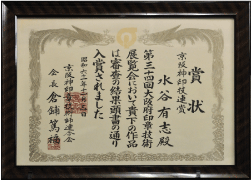 賞状
京阪神印技連賞
水谷有志殿
第三十四回大阪府印章技術
展覧会において貴下の作品
は審査の結果頭書の通り
入賞されました
昭和六二年十一月
京阪神印章技術師連合会
会長 倉鋪篤福